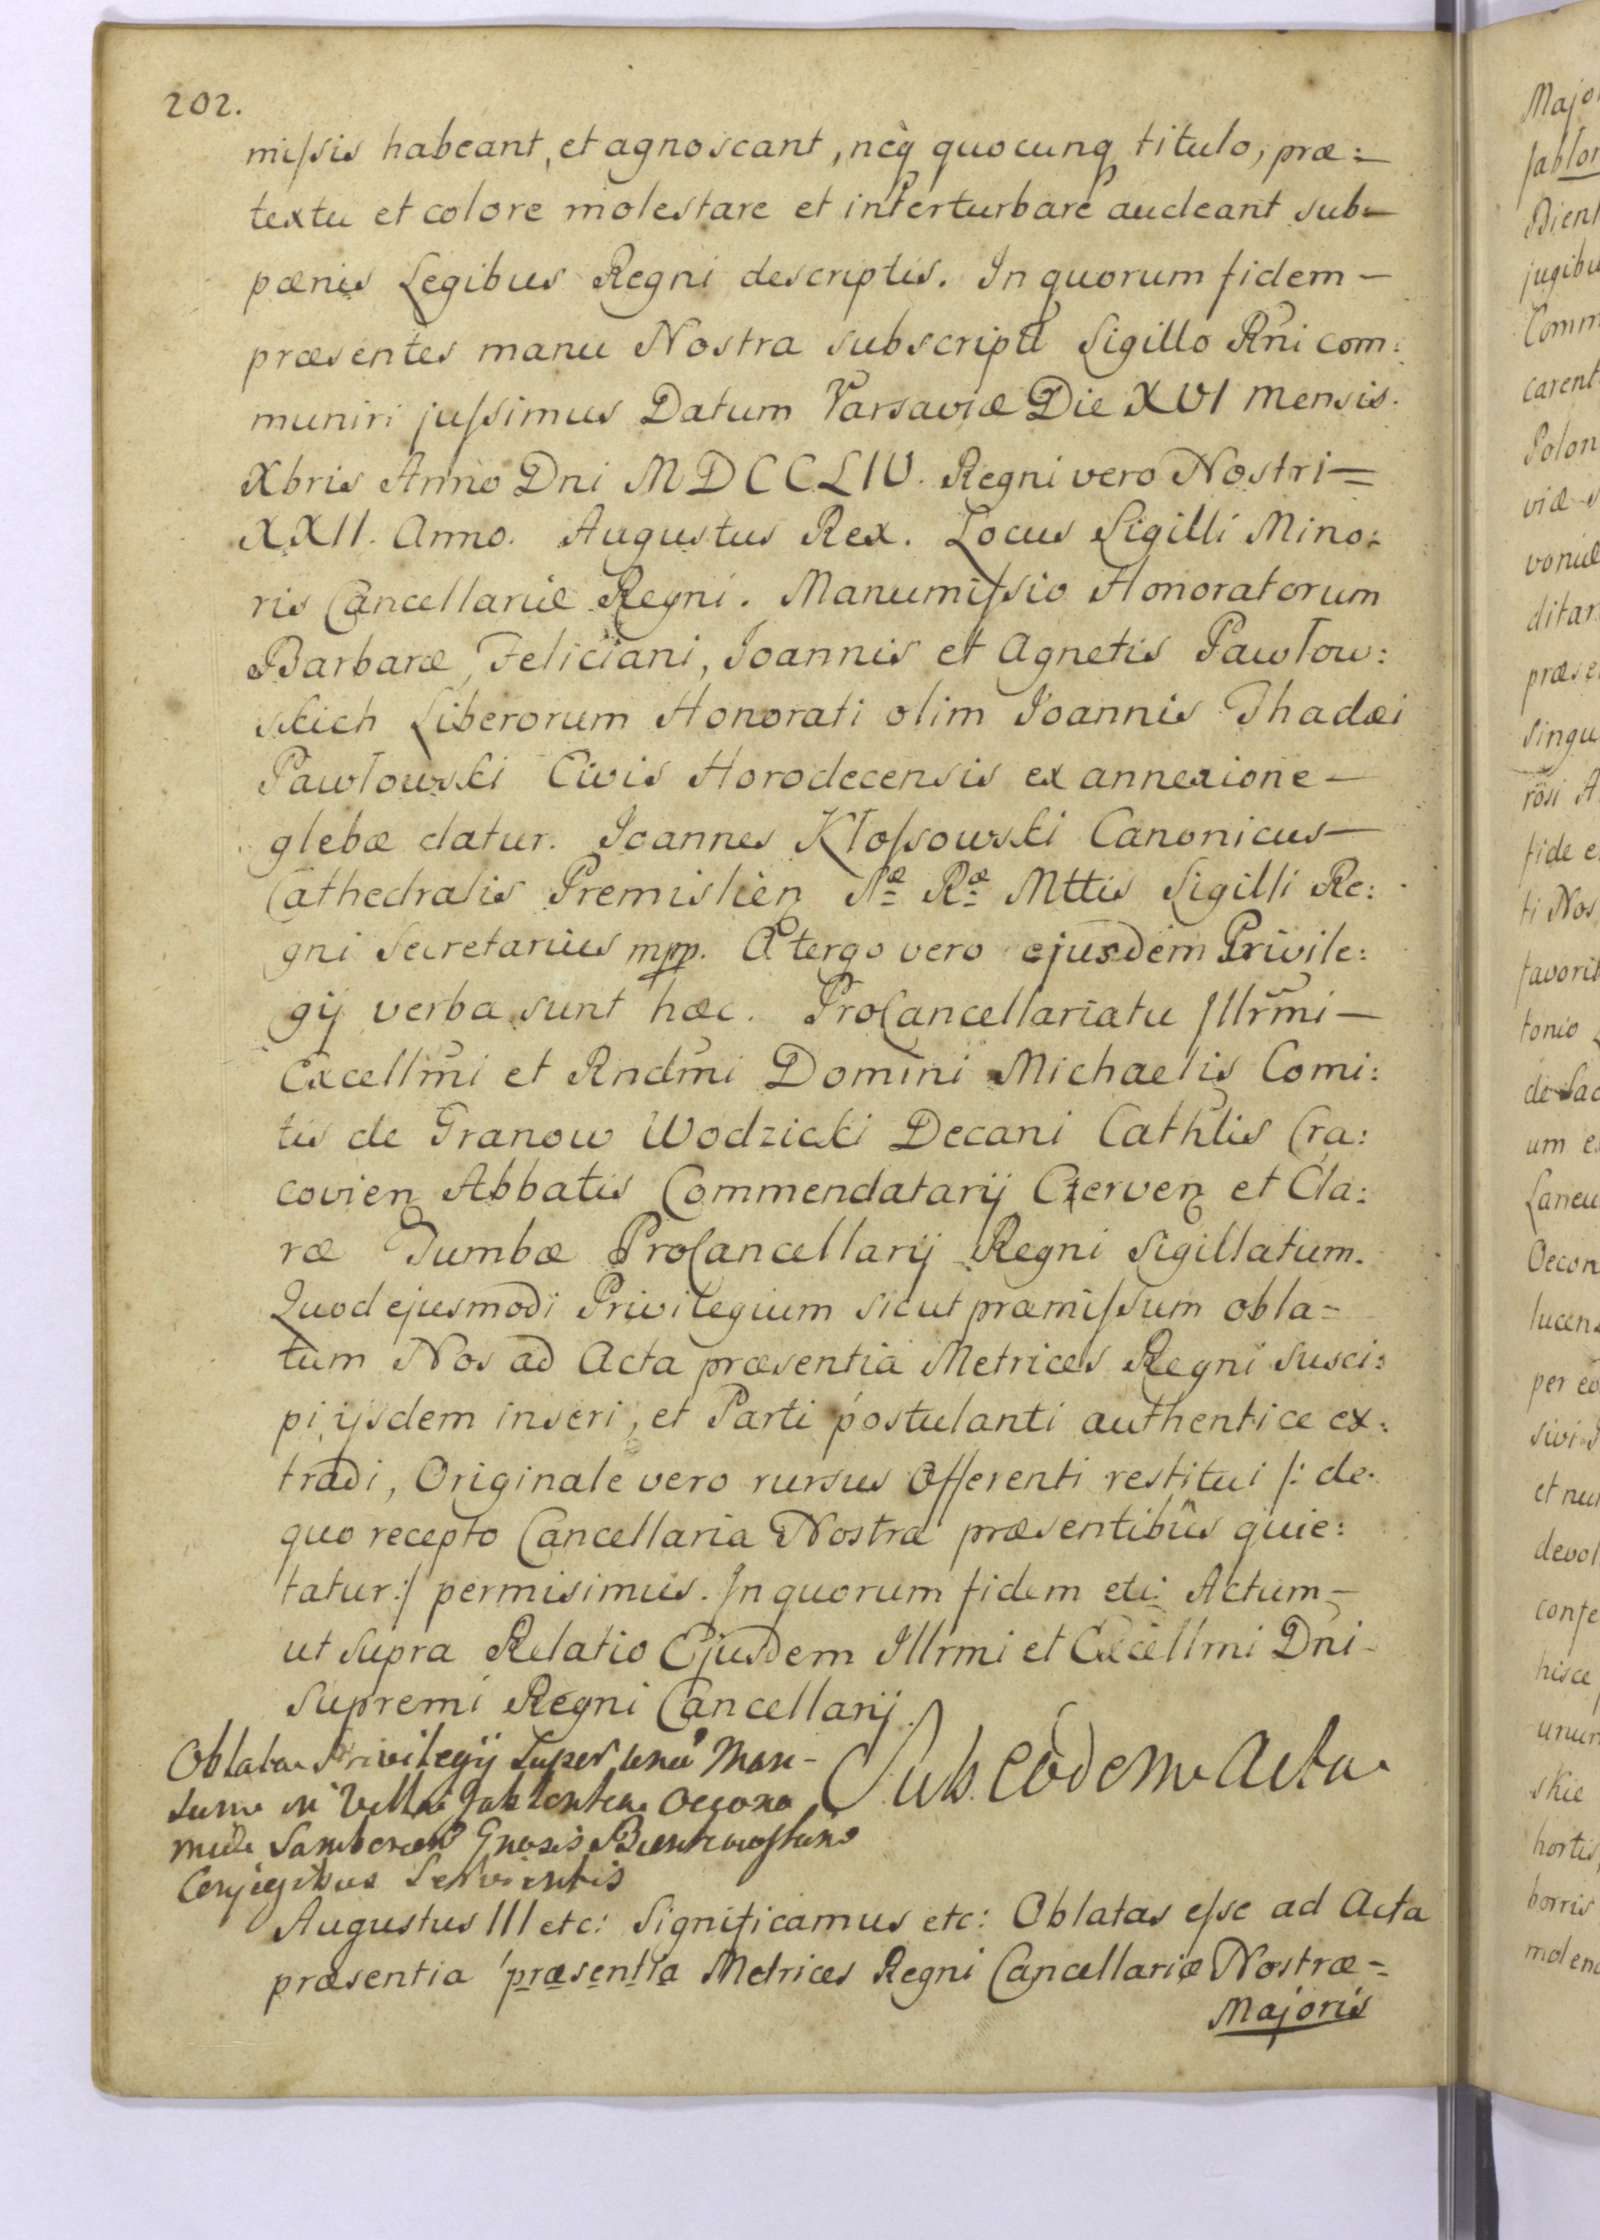 202.
mißsis habeant, et agnoscant, neq̀ quocunq titulo, præ:
textu et colore molestare et interturbare audeant sub
pænis Legibus Regni descriptis. In quorum fidem
præsentes manu Nostra subscriptã Sigillo Rñi com:
muniri jußsimus Datum Varsaviæ Die XVI mensis
Xbris Anno Dni MDCCLIV. Regni vero Nostri
XXII. Anno. Augustus Rex. Locus Sigilli Mino:
ris Cancellariæ Regni. Manumißsio Honoratorum
Barbaræ, Feliciani, Joannis et Agnetis Pawłow:
skich Liberorum Honorati olim Joannis Thadæi
Pawłowski Civis Horodecensis ex annexione
glebæ datur. Joannes Kłoßsowski Canonicus
Cathedralis Premislień Sæ Ræ Mttis Sigilli Re:
gni Secretarius mpp. A tergo vero ejusdem Privile:
gij verba sunt hæc. ProCancellariatu Illrm̃i
Excellm̃i et Rndm̃i Domini Michaelis Comi:
tis de Granow Wodzicki Decani Cathlis Cra:
covień Abbatis Commendatarij Czerveń et Cla:
ræ Tumbæ ProCancellarij Regni Sigillatum.
Quod ejusmodi Privilegium sicut præmißsum obla=
tum Nos ad Acta præsentia Metrices Regni susci:
pi, ijsdem inseri, et Parti postulanti authentice ex:
tradi, Originale vero rursus Offerenti restitui /: de
quo recepto Cancellaria Nostra præsentibus quie:
tatur :/ permisimus. In quorum fidem etc: Actum
ut supra Relatio Ejusdem Illrmi et Excellmi Dñi
Supremi Regni Cancellarij.
Oblata Privilegij Super unũ Man-
sum in Villa Jablonka Oecono
miæ Samborień Gnosis Bientkowskim
Conjugibus Servientis
Sub eodem Actu
Augustus III etc: Significamus etc: Oblatas eße ad Acta
præsentia præsentia Metrices Regni Cancellariæ Nostræ=
Majoris